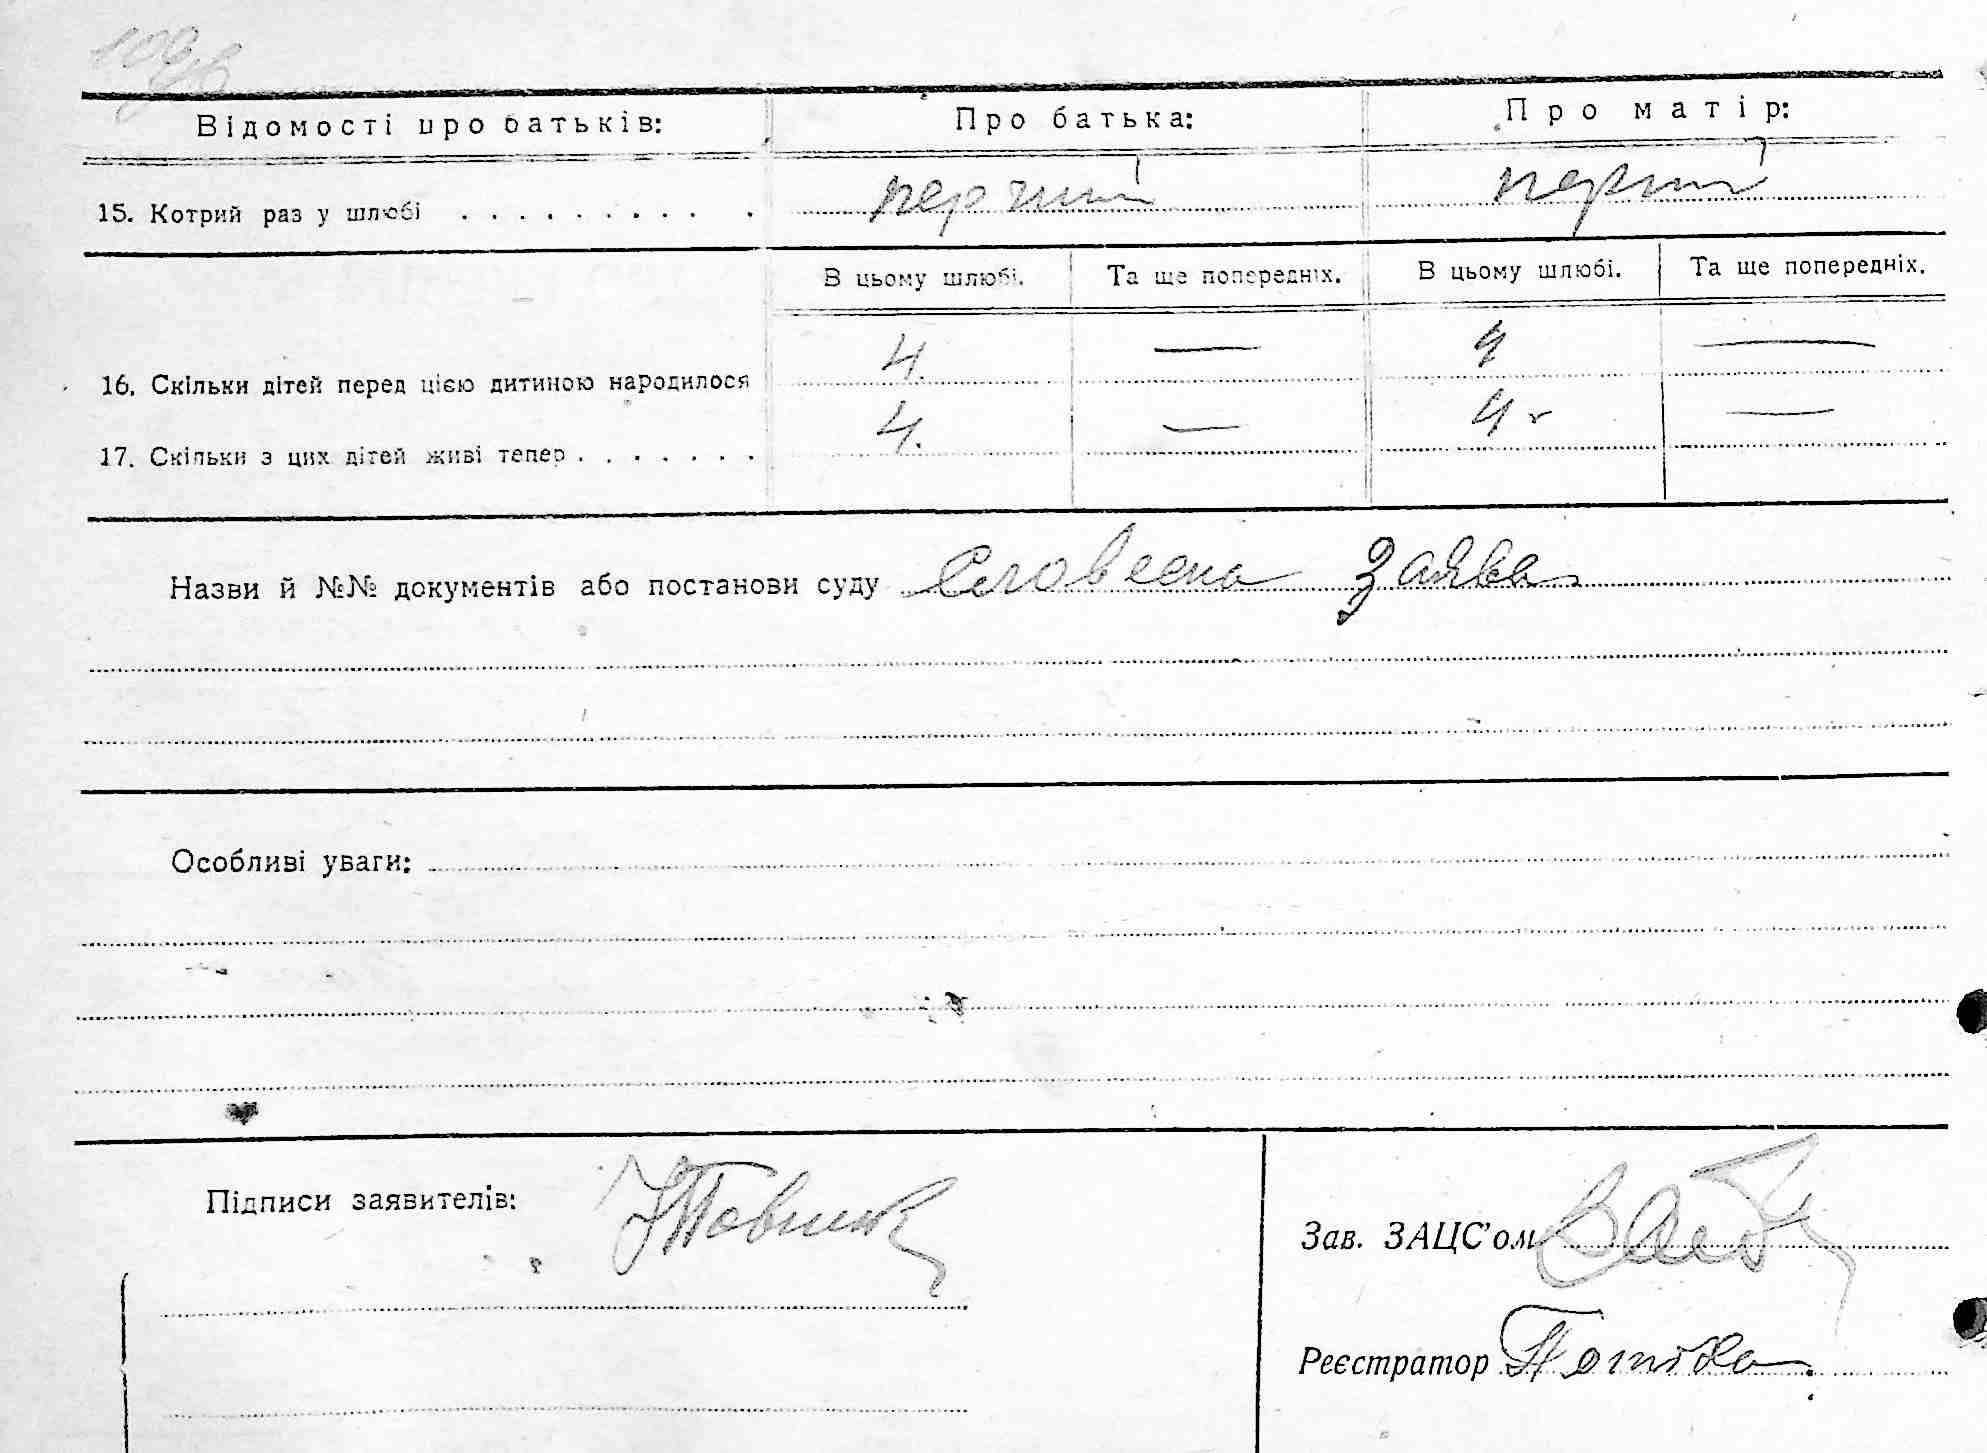 Відомості про батьків: Про батька: Про матір:
15. Котрий раз у шлюбі . . . . . . . . . . перший перший
В цьому шлюбі. Та ще попередніх. В цьому шлюбі. Та ще попередніх.
16. Скільки дітей перед цією дитиною народилося 4. — 4 —
17. Скільки з цих дітей живі тепер . . . . . . . 4. — 4 —
Назви й №№ документів або постанови суду Словесна заява
Особливі уваги:
Підписи заявителів:
Зав. ЗАЦС'ом
Реєстратор